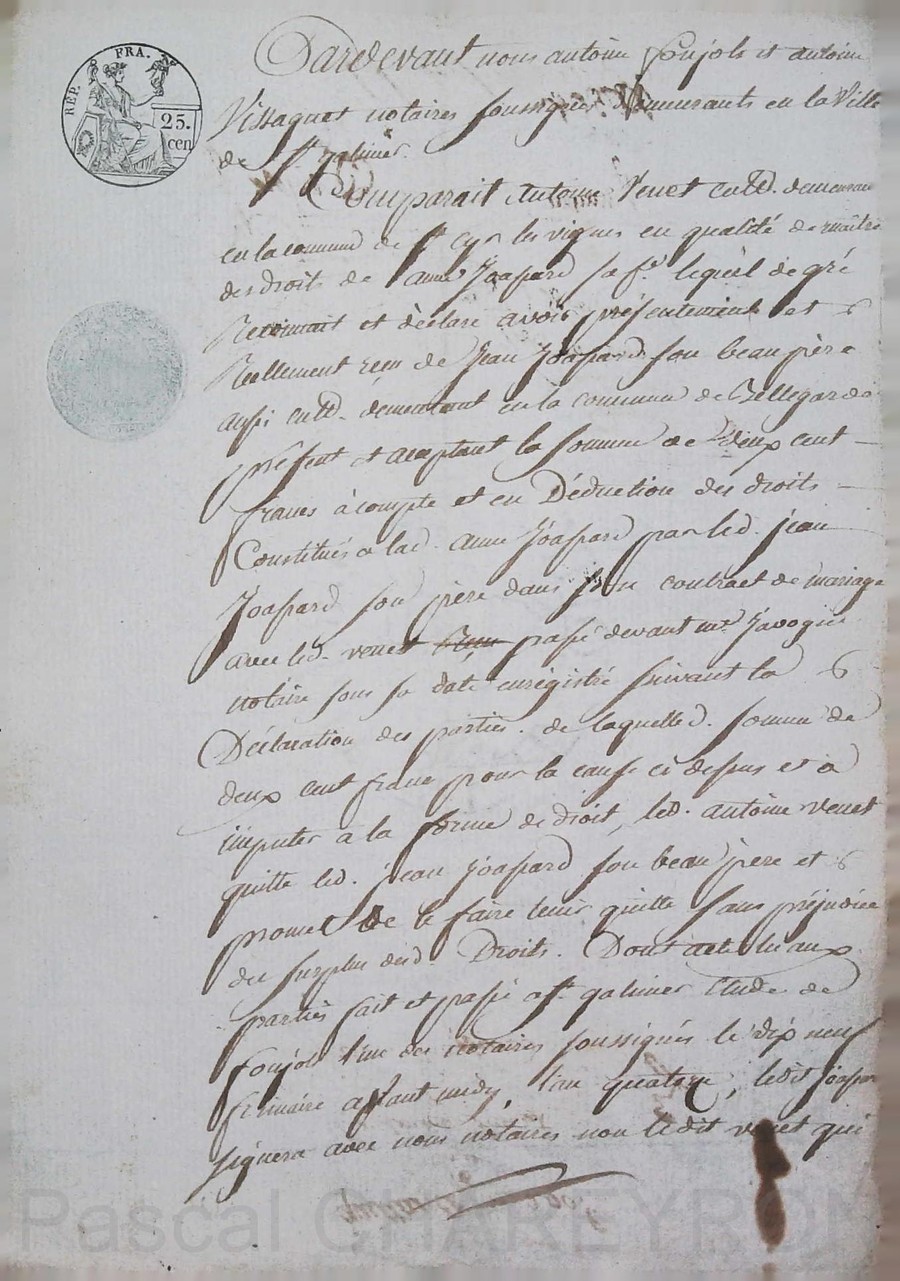 REP. FRA.
25.
cen
Pardevant nous antoine Foujols et antoine
Vissaguet notaires soussignés Demeurants en la Ville
de St galmier.
Comparait Antoine Venet cultd. demeurant
en la commune de St Cyr les vignes en qualité de maître
des droits de anne Joassard sa fe. lequel de gré
Reconnait et déclare avoir présentement et
Reellement reçu de Jean Joassard son beau père
aussi cultd. demeurant en la commune de Bellegarde
présent et acceptant la somme de deux cent
francs à compte et en Déduction des droits
Constitués a lad. anne Joassard par led. jean
Joassard son père dans son contract de mariage
avec led. venet passé devant me. Javogues
notaire sous sa date enregistré suivant la
Déclaration des parties. de laquelle d. somme de
deux cent francs pour la cause ci dessus et à
imputer à la forme de droit, led. antoine venet
quitte led. jean Joassard son beau père et
promet de le faire tenir quitte sans préjudice
du surplus desd. Droits. Dont acte lu aux
parties fait et passé a St galmier Etude de
foujols l'un des notaires soussignés le dix neuf
frimaire avant midy, l'an quatorze, ledit joassard
signera avec nous notaires non ledit venet qui
Pascal CHAREYRON